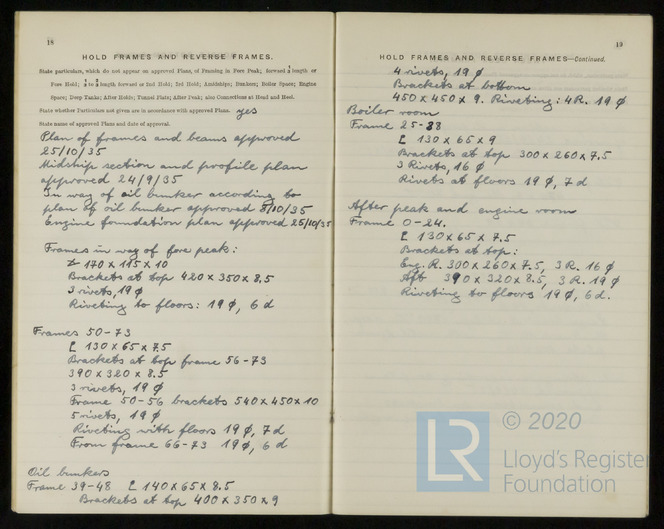 18
HOLD FRAMES AND REVERSE FRAMES.
State particulars, which do not appear on approved Plans, of Framing in Fore Peak; forward ⅕ length or
Fore Hold; length forward or 2nd Hold; 3rd Hold; Amidships; Bunkers; Boiler Space; Engine
Space; Deep Tanks; After Holds; Tunnel Flats; After Peak; also Connections at Head and Heel.
State whether Particulars not given are in accordance with approved Plans. yes
State name of approved Plans and date of approval.
Plan of frames and beams approved
25/10/35
Midship section and profile plan
approved 24/9/35
In way of oil bunker according to
plan of oil bunker approved 8/10/35
Engine foundation plan approved 25/10/35
Frames in way of fore peak:
170 x 115 x 10
Brackets at top 420 x 350 x 8.5
3 rivets, 19 ø
Riveting to floors: 19 ø, 6 d
Frames 50-73
[ 130 x 65 x 7.5
Brackets at top frame 56-73
390 x 320 x 8.5
3 rivets, 19 ø
Frame 50-56 brackets 540 x 450 x 10
5 rivets, 19 ø
Riveting with floors 19 ø, 7 d
From frame 66-73 19 ø, 6 d
Oil bunkers
Frame 39-48 [ 140 x 65 x 8.5
Brackets at top 400 x 350 x 9
19
HOLD FRAMES AND REVERSE FRAMES—Continued.
4 rivets, 19 ø
Brackets at bottom
450 x 450 x 9. Riveting: 4 R. 19 ø
Boiler room
Frame 25-38
[ 130 x 65 x 9
Brackets at top 300 x 260 x 7.5
3 Rivets, 16 ø
Rivets at floors 19 ø, 7 d
After peak and engine room
Frame 0-24.
[ 130 x 65 x 7.5
Brackets at top:
Eng. R. 300 x 260 x 7.5, 3 R. 16 ø
Aft 390 x 320 x 8.5, 3 R. 19 ø
Riveting to floors 19 ø, 6 d.
LR
© 2020
Lloyd's Register
Foundation